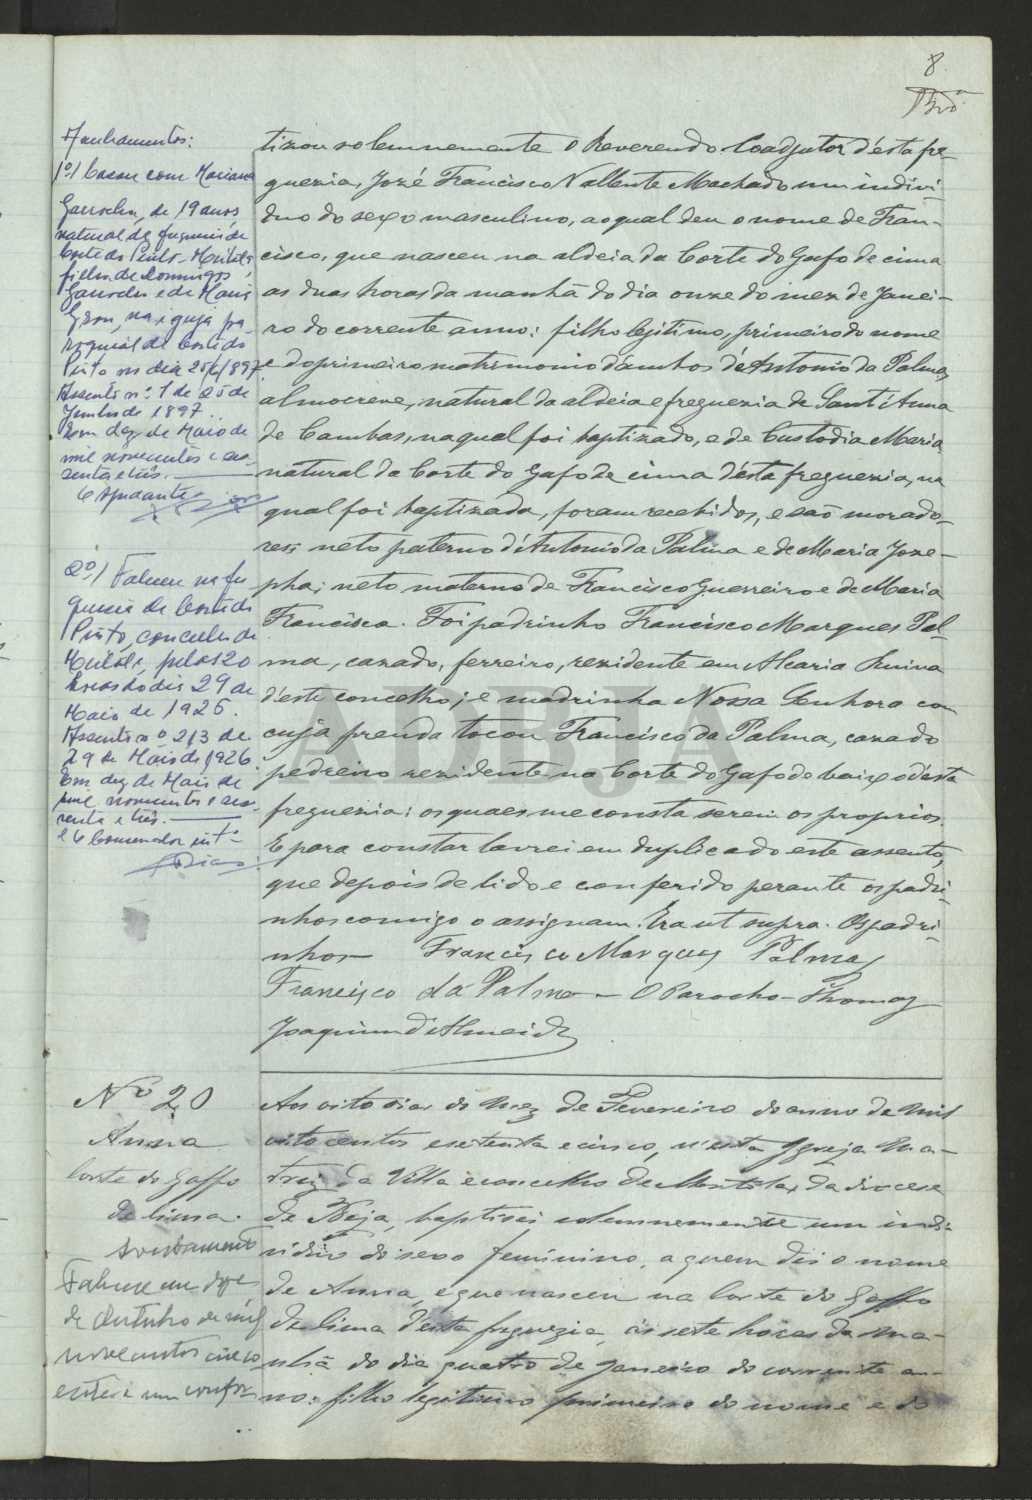 8
Averbamentos:
1º) Casou com Mariana
Garrocho, de 19 anos
natural da freguesia de
Corte do Pinto - Mértola
filha de Domingos
Garrocho e de Maria
na egreja pa-
roquial de Corte do
Pinto no dia 25/6/897
Assento nº 1 de 25 de
Junho de 1897.
Em dez de Maio de
mil novecentos e qua-
renta e três.
O Ajudante
2º) Faleceu na fre
guesia de Corte do
Pinto, concelho de
Mértola, pelas 20
horas do dia 29 de
Maio de 1926.
Assento nº 213 de
29 de Maio de 1926.
Em dez de Maio de
mil novecentos e qua-
renta e três.
O Conservador intº
Dias
tizou solemnemente o Reverendo Coadjutor d'ésta fre-
guezia, José Francisco Vallente Machado um indivi-
duo do sexo masculino, ao qual deu o nome de Fran-
cisco, que nasceu na aldeia da Corte do Gafo de cima
as duas horas da manhã do dia onze do mez de Janei-
ro do corrente anno: filho legitimo, primeiro do nome
e do primeiro matrimonio d'ambos d'Antonio da Palma,
almocreve, natural da aldeia e freguezia de Sant'Anna
de Cambas, na qual foi baptizado, e de Custodia Maria,
natural da Corte do Gafo de cima d'ésta freguezia, na
qual foi baptizada, foram recebidos, e são morado-
res: neto paterno d'Antonio da Palma e de Maria Joze-
pha; neto materno de Francisco Guerreiro e de Maria
Francisca. Foi padrinho Francisco Marques Pal-
ma, cazado, ferreiro, rezidente em Alcaria Ruiva
d'éste concelho; e madrinha Nossa Senhora com
cuja prenda tocou Francisco da Palma, cazado
pedreiro rezidente na Corte do Gafo de baixo d'ésta
freguezia: os quaes me consta serem os proprios.
E para constar lavrei em duplicado este assento,
que depois de lido e conferido perante os padri-
nhos comigo o assignam. Era ut supra. Os padri-
nhos - Francisco Marques Palma
Francisco da Palma - O Parocho - Thomaz
Joaquim d'Almeida
ADBJA
Nº 20
Anna
Corte do Gaffo
de Cima.
Averbamento
Faleceu em doze
de Outubro de mil
novecentos cinco
enta e um
Aos oito dias do mez de Fevereiro do anno de mil
oito centos e setenta e cinco, n'esta Igreja Ma-
triz da Villa e concelho de Mertola, da diocese
de Beja, baptisei solemnemente um indi
viduo do sexo feminino, a quem dei o nome
de Anna, e que nasceu na Corte do Gaffo
de Cima d'esta freguezia, ás sete horas da ma-
nhã do dia quatro de Janeiro do corrente an-
no: filha legitima primeira do nome e do